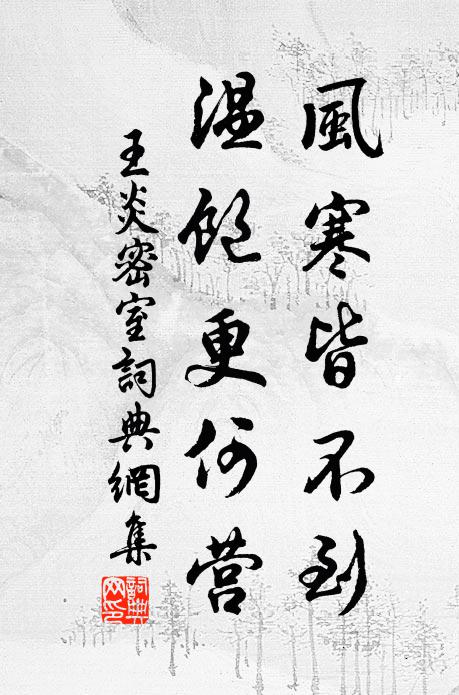 風寒皆不到
温飽更何营
王炎密室詞典網集
詞典
网印